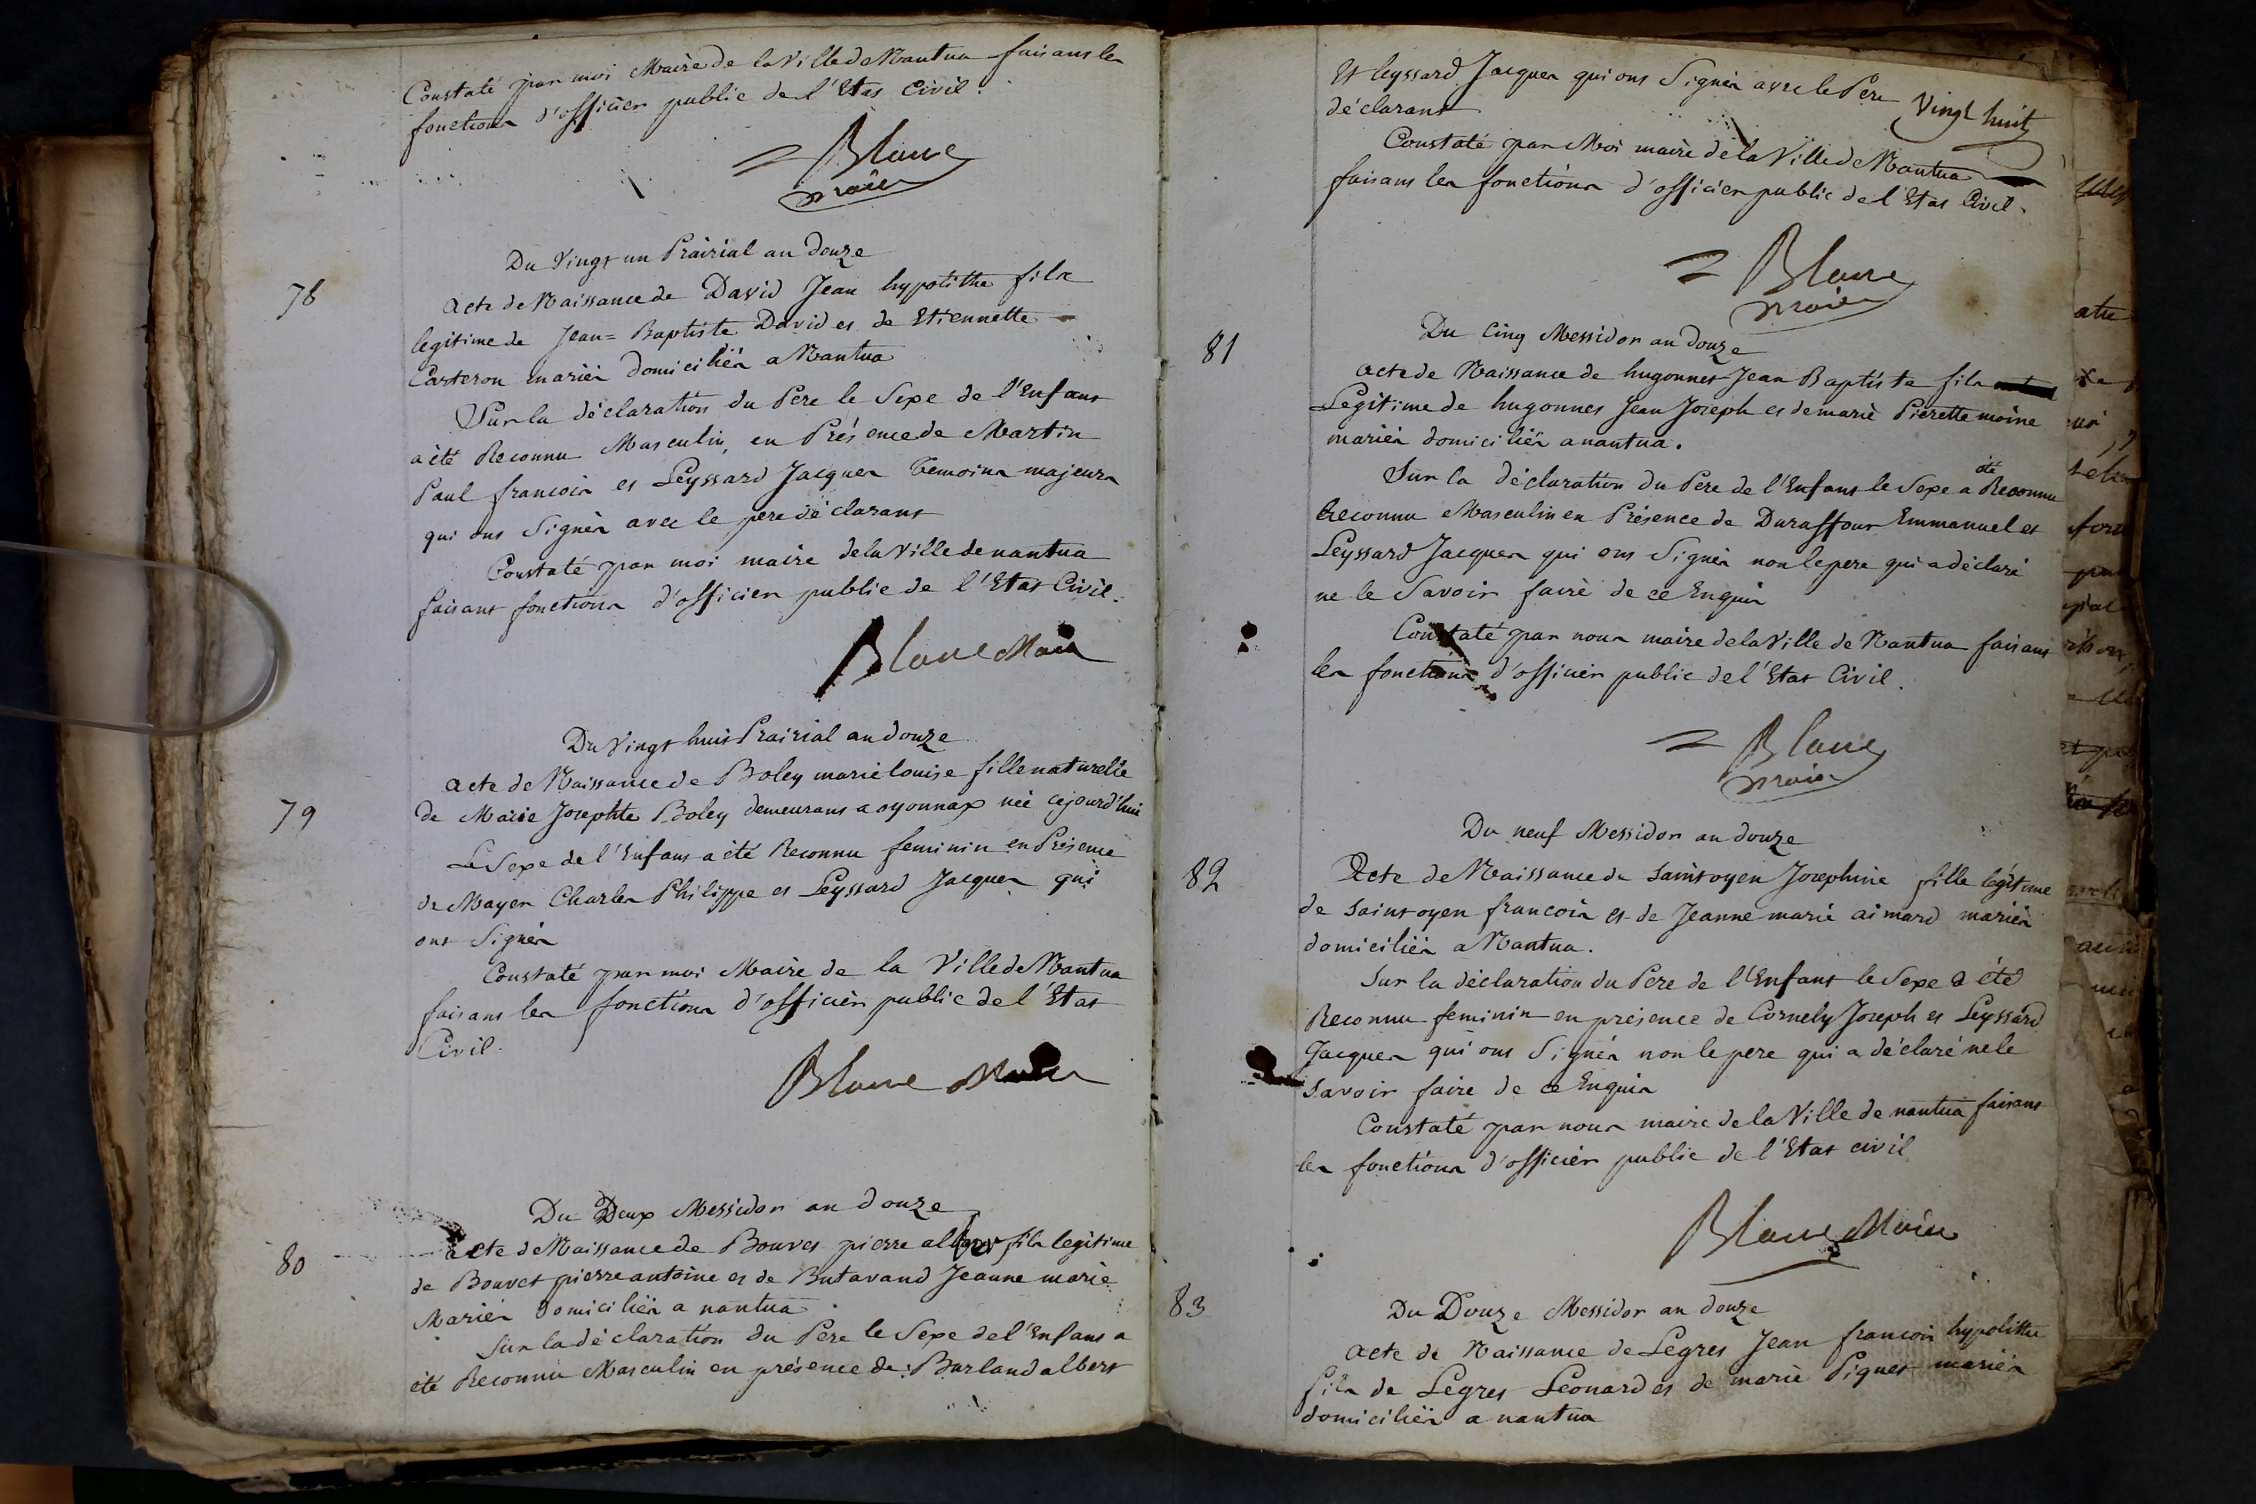 Constaté par moi Maire de la Ville de Nantua faisant les
fonctions d'officier public de l'Etat Civil.
Blanc
maire
Du Vingt un Prairial an douze
78
acte de Naissance de David Jean hypolithe fils
legitime de Jean=Baptiste David et de Etiennette
Carteron mariés domiciliés a Nantua
Sur la déclaration du Pere le Sexe de l'Enfant
a été Reconnu Masculin, en Présence de Martin
Paul francois et Leyssard Jacques temoins majeurs
qui ont Signés avec le pere déclarant
Constaté par moi maire de la Ville de nantua
faisant fonctions d'officier public de l'Etat Civil.
Blanc Maire
Du Vingt huit Prairial an douze
79
acte de Naissance de Boley marie louise fille naturelle
de Marie Josephte Boley demeurant a oyonnax née cejourd'hui
Le Sexe de l'Enfant a été Reconnu feminin en Présence
de Mayer Charles Philippe et Leyssard Jacques qui
ont Signés
Constaté par moi Maire de la Ville de Nantua
faisant les fonctions d'officier public de l'Etat
Civil.
Blanc Maire
Du Deux Messidor an douze
80
acte de Naissance de Bouvet pierre albert fils legitime
de Bouvet pierre antoine et de Butavand Jeanne marie
Mariés domiciliés a nantua.
Sur la déclaration du Pere le Sexe de l'Enfant a
été Reconnu Masculin en présence de Barland albert
Et leyssard Jacques qui ont Signés avec le Pere
Vingt huit
déclarant
Constaté par Moi maire de la Ville de Nantua
faisant les fonctions d'officier public de l'Etat Civil.
Blanc
maire
Du Cinq Messidor an douze
81
acte de Naissance de hugonnet Jean Baptiste fils
Legitime de hugonnet Jean Joseph et de marie Pierette moine
mariés domiciliés a nantua.
Sur la déclaration du Pere de l'Enfant le Sexe a été Reconnu
Reconnu Masculin en Présence de Duraffour Emmanuel et
Leyssard Jacques qui ont Signés non le pere qui a déclaré
ne le Savoir faire de ce Enquis
Constaté par nous maire de la Ville de Nantua faisant
les fonctions d'officier public de l'Etat Civil.
Blanc
maire
Du neuf Messidor an douze
82
Acte de Naissance de saintoyen Josephine fille légitime
de saintoyen francois et de Jeanne marie aimard mariés
domiciliés a Nantua.
Sur la déclaration du Pere de l'Enfant le Sexe a été
Reconnu feminin en présence de Cornely Joseph et Leyssard
Jacques qui ont Signés non le pere qui a déclaré ne le
savoir faire de ce Enquis
Constaté par nous maire de la Ville de nantua faisant
les fonctions d'officier public de l'Etat civil
Blanc Maire
83
Du Douze Messidor an douze
acte de Naissance de Legret Jean francois hypolithe
fils de Legret Leonard et de marie Piquet mariés
domiciliés a nantua